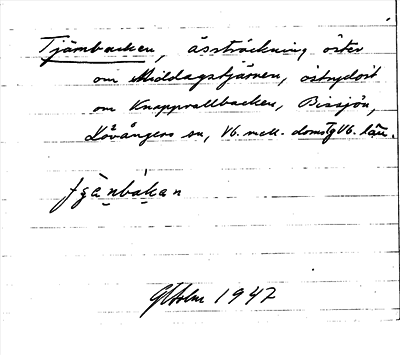 Tjärnbacken, åssträckning öster
om Middagstjärnen, ostsydost
om Knapprallbacken, Bissjön,
Lövångers sn, Vb. mell. doms Vb. län.
1947